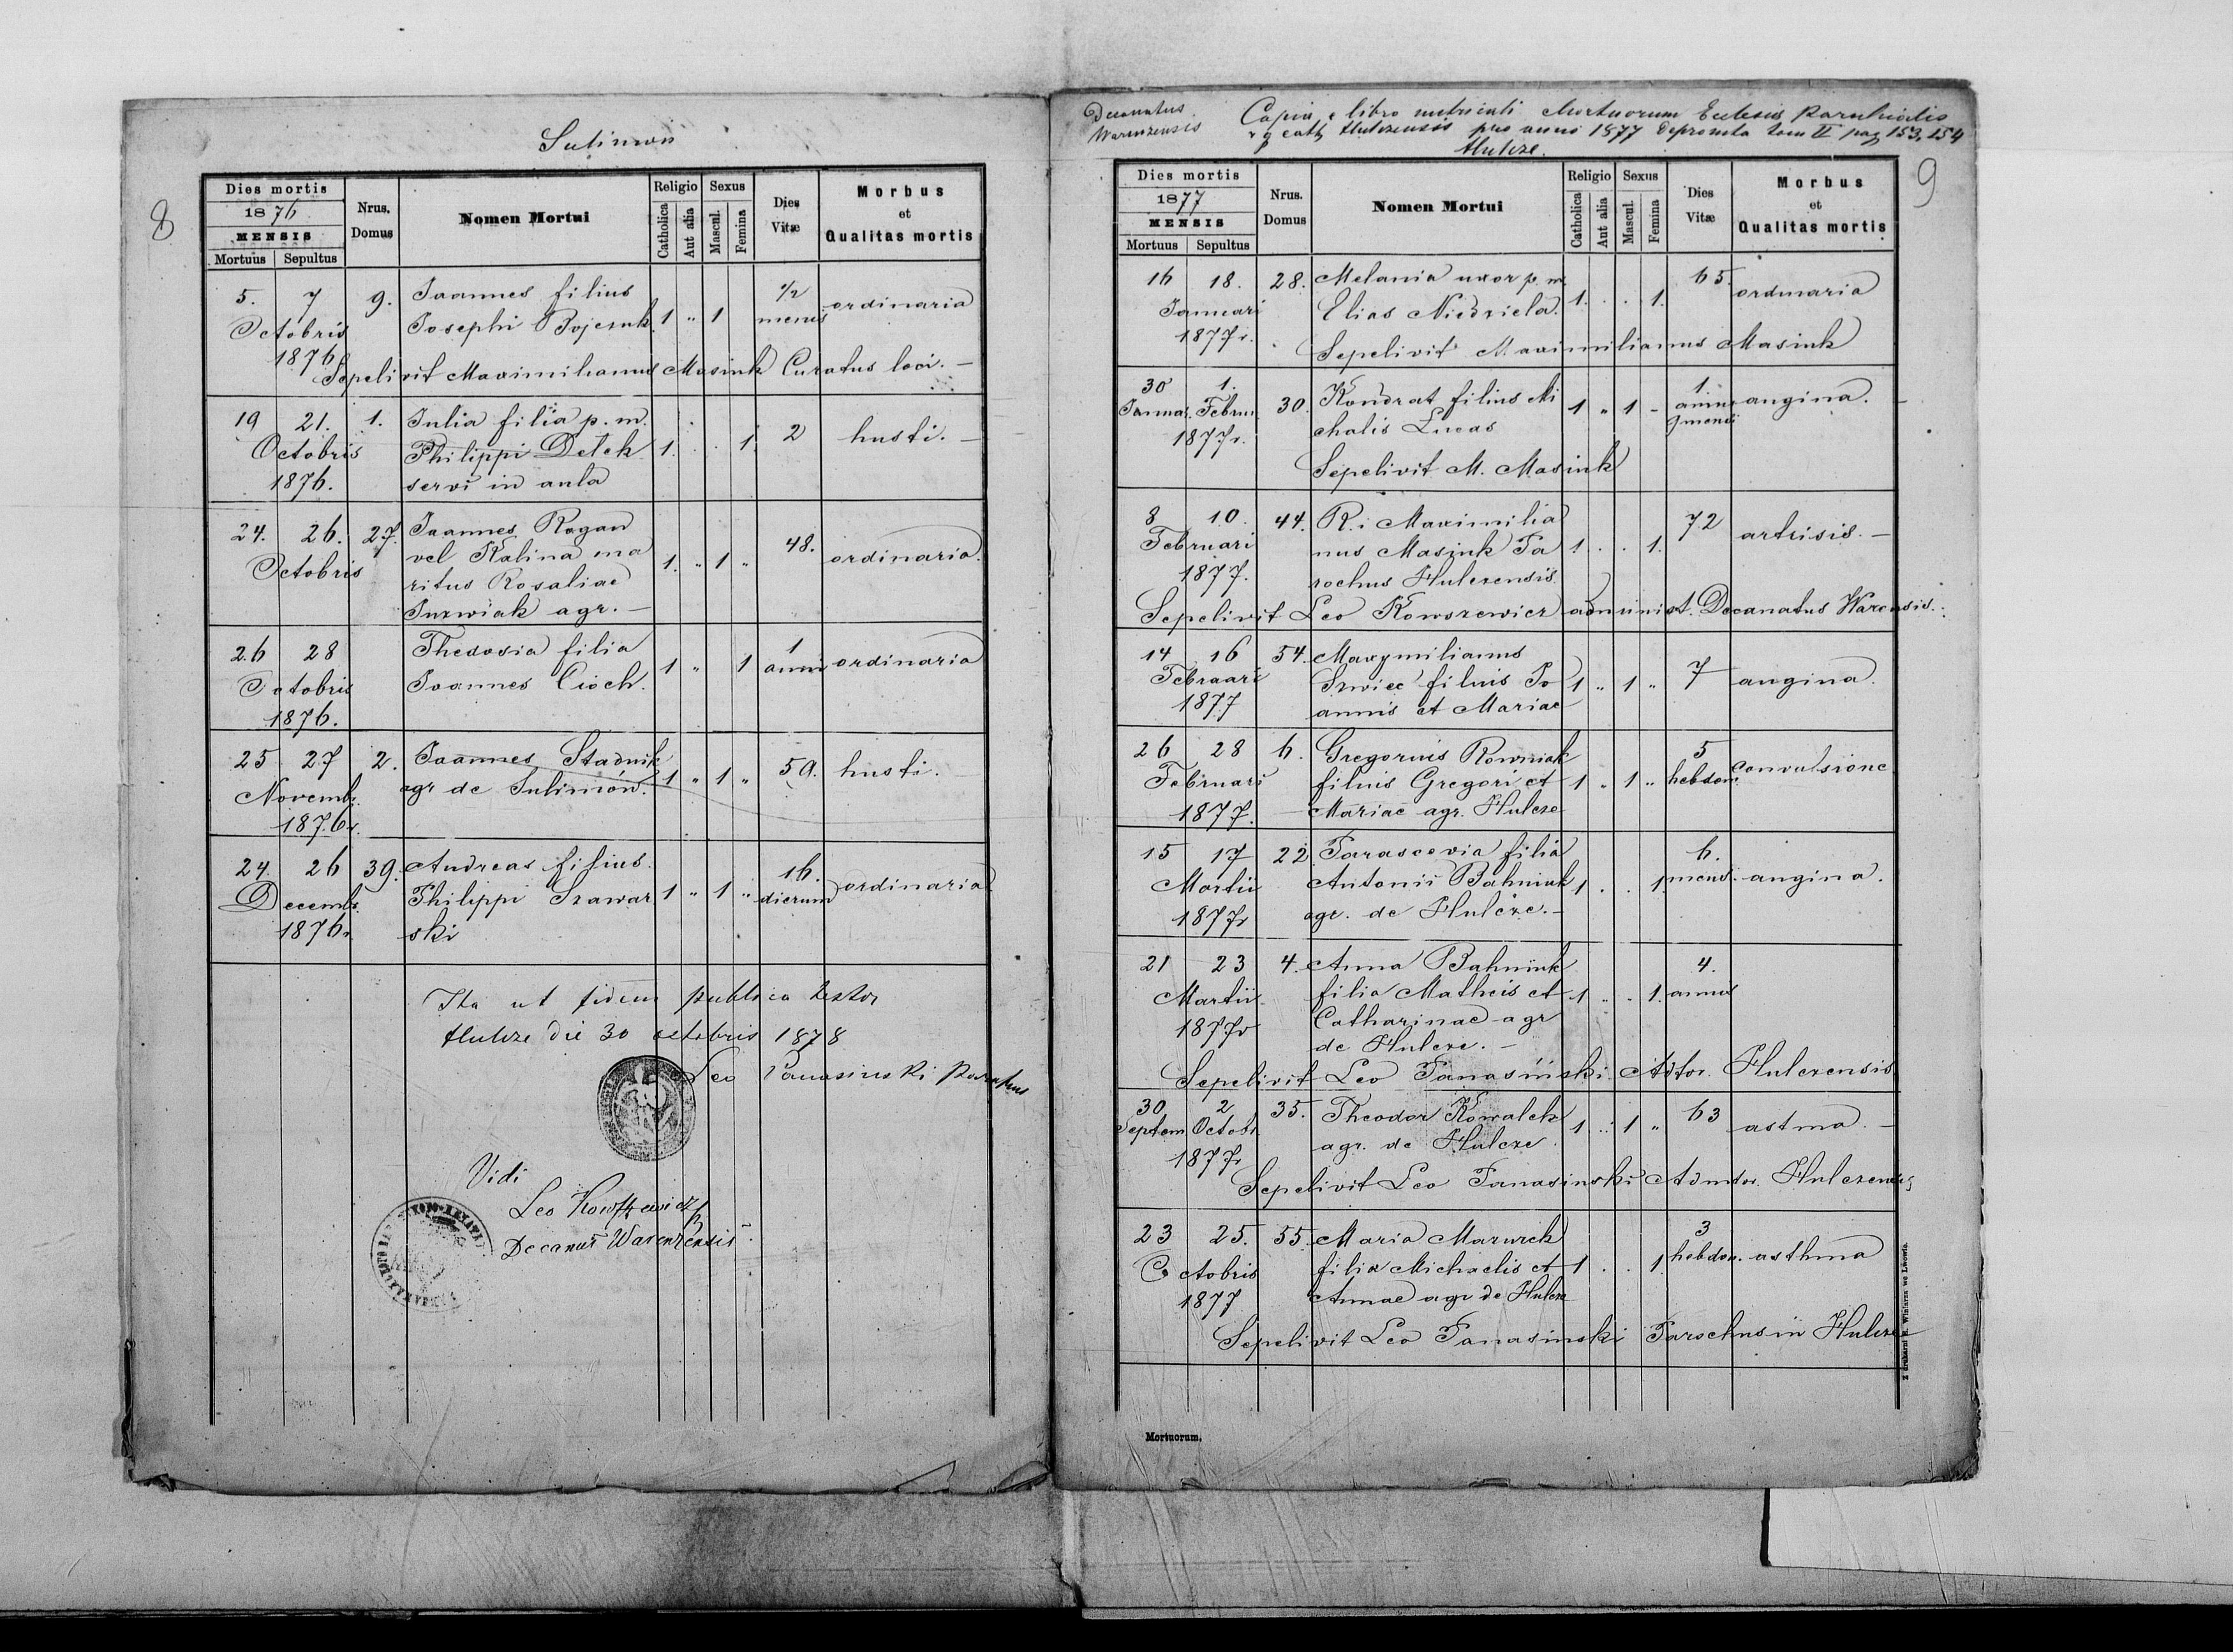 8
Sulimów
Dies mortis
1876
MENSIS
Mortuus Sepultus
Nrus. Domus
Nomen Mortui
Religio
Catholica Aut alia
Sexus
Mascul. Femina
Dies Vitæ
Morbus et Qualitas mortis
5. 7 9. Joannes filius 1/2 ordinaria
Octobris Josephi Bojczuk 1 " 1 mensis
1876
Sepelivit Maximilianus Masiuk Curatus loci. —
19 21. 1. Julia filia p. m. 2 husti. —
Octobris Philippi Delek 1. . . 1.
1876. servi in aula
24. 26. 27. Joannes Rogan 48. ordinaria.
Octobris vel Kalina ma 1. " 1 "
ritus Rosaliae
Jurwiak agr. —
26 28 Thedosia filia 1 ordinaria
Octobris Joannes Cioch. 1 " 1 anni
1876.
25 27 2. Joannes Stadnik 59. husti.
Novembr. agr de Sulimów. 1 " 1 "
1876r.
24. 26 39. Andreas filius 16. ordinaria
Decembr. Philippi Szawar 1 " 1 " dierum
1876r. ski
Ita ut fidem publica testor
Hulcze die 30 octobris 1878
Leo Panasinski Parochus
Vidi
Leo Kowszewicz
Decanus Warenzensis
9
Decanatus
Warenzensis
Copia e libro metricali Mortuorum Eclesiae Parochialis
r g cath Hulczensis pro anno 1877 depromta tom II pag 153, 154
Hulcze.
Dies mortis
1877
MENSIS
Mortuus Sepultus
Nrus. Domus
Nomen Mortui
Religio
Catholica Aut alia
Sexus
Mascul. Femina
Dies Vitæ
Morbus et Qualitas mortis
16 18. 28. Melania uxor p. m. 65 ordinaria
Januari Elias Niedziela. 1. . . 1.
1877r.
Sepelivit Maximilianus Masiuk
30 1. 30. Kondrat filius Mi 1 " 1 - 1. angina. —
Januar. Februar. chalis Lucas
1877r.
Sepelivit M. Masiuk
8 10. 44. R. i Maximilia 72 artrisis. —
Februari nus Masiuk Pa 1 . . 1.
1877. rochus Hulczensis
Sepelivit Leo Kowszewicz administ. Decanatus Warensis.
14 16 54. Maxymilianus
Februari Szwiec filius Jo 1 " 1 " 7 angina.
1877 annis et Mariae
26 28 6. Gregorius Rowniak 5 convulsione
Februari filius Gregori et 1 " 1 " hebdom.
1877. Mariae agr. Hulcze
15 17 22 Parascevia filia 6.
Martii Antonii Bahniuk 1 . . 1 mens. angina.
1877r agr. de Hulcze. —
21 23 4. Anna Bahniuk 4.
Martii filia Matheis et 1 . . 1. annus
1877r Catharinae agr
de Hulcze. —
Sepelivit Leo Panasiński Adtor. Hulczensis
30 2 35. Theodor Kowalek 1 .. 1 " 63 astma. —
Septem Octobr. agr. de Hulcze.
1877r
Sepelivit Leo Panasinski Admtor. Hulczensis
23 25. 55. Maria Mazurek 3
Octobris filia Michaelis et 1 . . 1. hebdom. asthma
1877 Annae agr de Hulcze
Sepelivit Leo Panasinski Parochus in Hulcze
Mortuorum.
Z drukarni E. Winiarza we Lwowie.